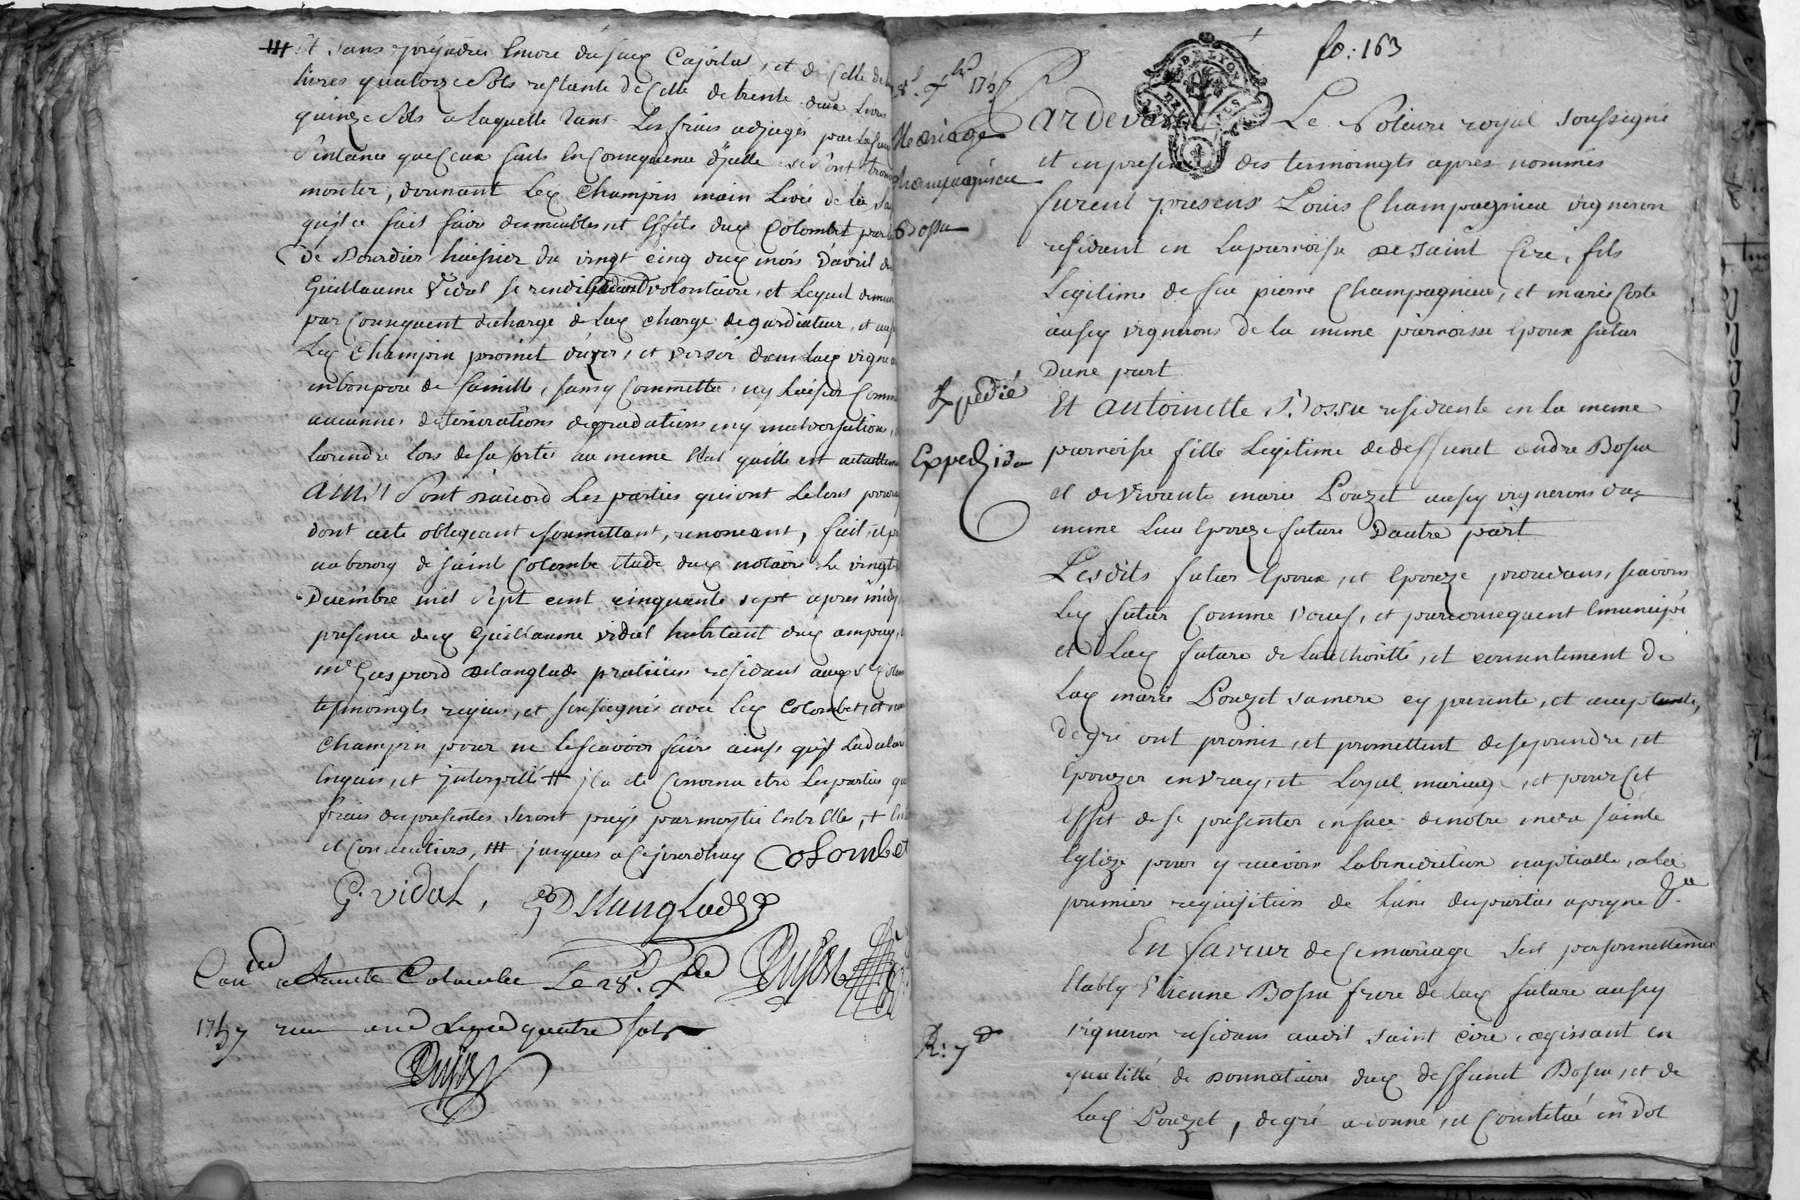 Et sans prejudice Encore du faux Cajola, et de celle de
livres quatorze sols restante de Celle de trente deux Livres
quinze sols a laquelle sant Les frais adjugés par La
d'instance que ceux faits En Consequence d'jcelle se sont trouvés
monter, donnant Led Champin main Levée de la
qu'il a fait faire de meubles, et Effets dud Colombet par
De Bourdier huissier du vingt cinq dud mois d'avril
Guillaume Vidal se rendit gardiateur volontaire, et Lequel demeure
par Consequent decharge de Lad charge de gardiateur, et
Led Champin promet d'user, et verser dans lad vigne
en bon pere de famille, sans y Commettre, ny Laisser Comm
aucunes deteriorations degradations ny malversation,
La rendre lors de sa sortie au meme Etat qu'elle est actuellement
ainsi sont d'accord Les parties qui ont Le tout
dont acte obligeant soumettant, renonceant, fait, et
au bourg de saint Colombe Etude dud notaire Le vingt
Decembre mil sept cent cinquante sept apres midy
presence dud Guillaume vidal habitant dud ampuy,
mr Gaspard Delanglade praticien residant aud Ste Colombe
tesmoingts requis, et soussignés avec Led Colombet, et non
Champin pour ne le scavoir faire ainsi qu'il La declaré
Enquis, et jnterpellé # jl a eté Convenu etre Les parties que
frais du presentes seront payés par moytié Entr'Elle,
et Conventions, ### jusques a Cejourdhuy Colombet
G. vidal, GDelanglade
Con.lé a Sainte Colombe Le 28.e Xbre Dujon
1757 recu une Livre quatre sols
Dujon
fo: 163
28.e Xbre 1757
Mariage
Champagnieu
Bossu
Expedié
Expedié
R: 7 d
Pardevant Le Notaire royal soussigné
et en presence des temoingts apres nommés
furent presens Louis Champagnieu vigneron
residant en La parroisse de Saint Cire, fils
Legitime de feu pierre Champagnieu, et marie Coste
aussy vignerons de la meme parroisse Epoux futur
Dune part
Et antoinette Bossu residente en la meme
parroisse fille Legitime de deffunct andre Bossu
et de vivante marie Pouzet aussy vignerons dud
meme Lieu Epouze future D'autre part
Lesdits futur Epoux, et Epouze procedans, scavoir
Led futur Comme veuf, et par consequent Emancipé
et Lad future de L'authorité, et consentement de
Lad marie Pouzet sa mere cy presente, et acceptante,
De gré ont promis, et promettent de se prendre, et
Epouzer en vray, et Loyal mariage, et pour Cet
Effet de se presenter en face de notre mere sainte
Eglize pour y recevoir La benediction nuptialle, a La
premiere requisition de L'une des parties a peyne &a
En faveur de Ce mariage s'est personnellement
Etably Etienne Bossu frere de Lad future aussy
vigneron residans audit saint Cire, agissant en
qualitté de donnataire dud deffunct Bossu, et de
Lad Pouzet, de gré a donné, et Constitué en dot